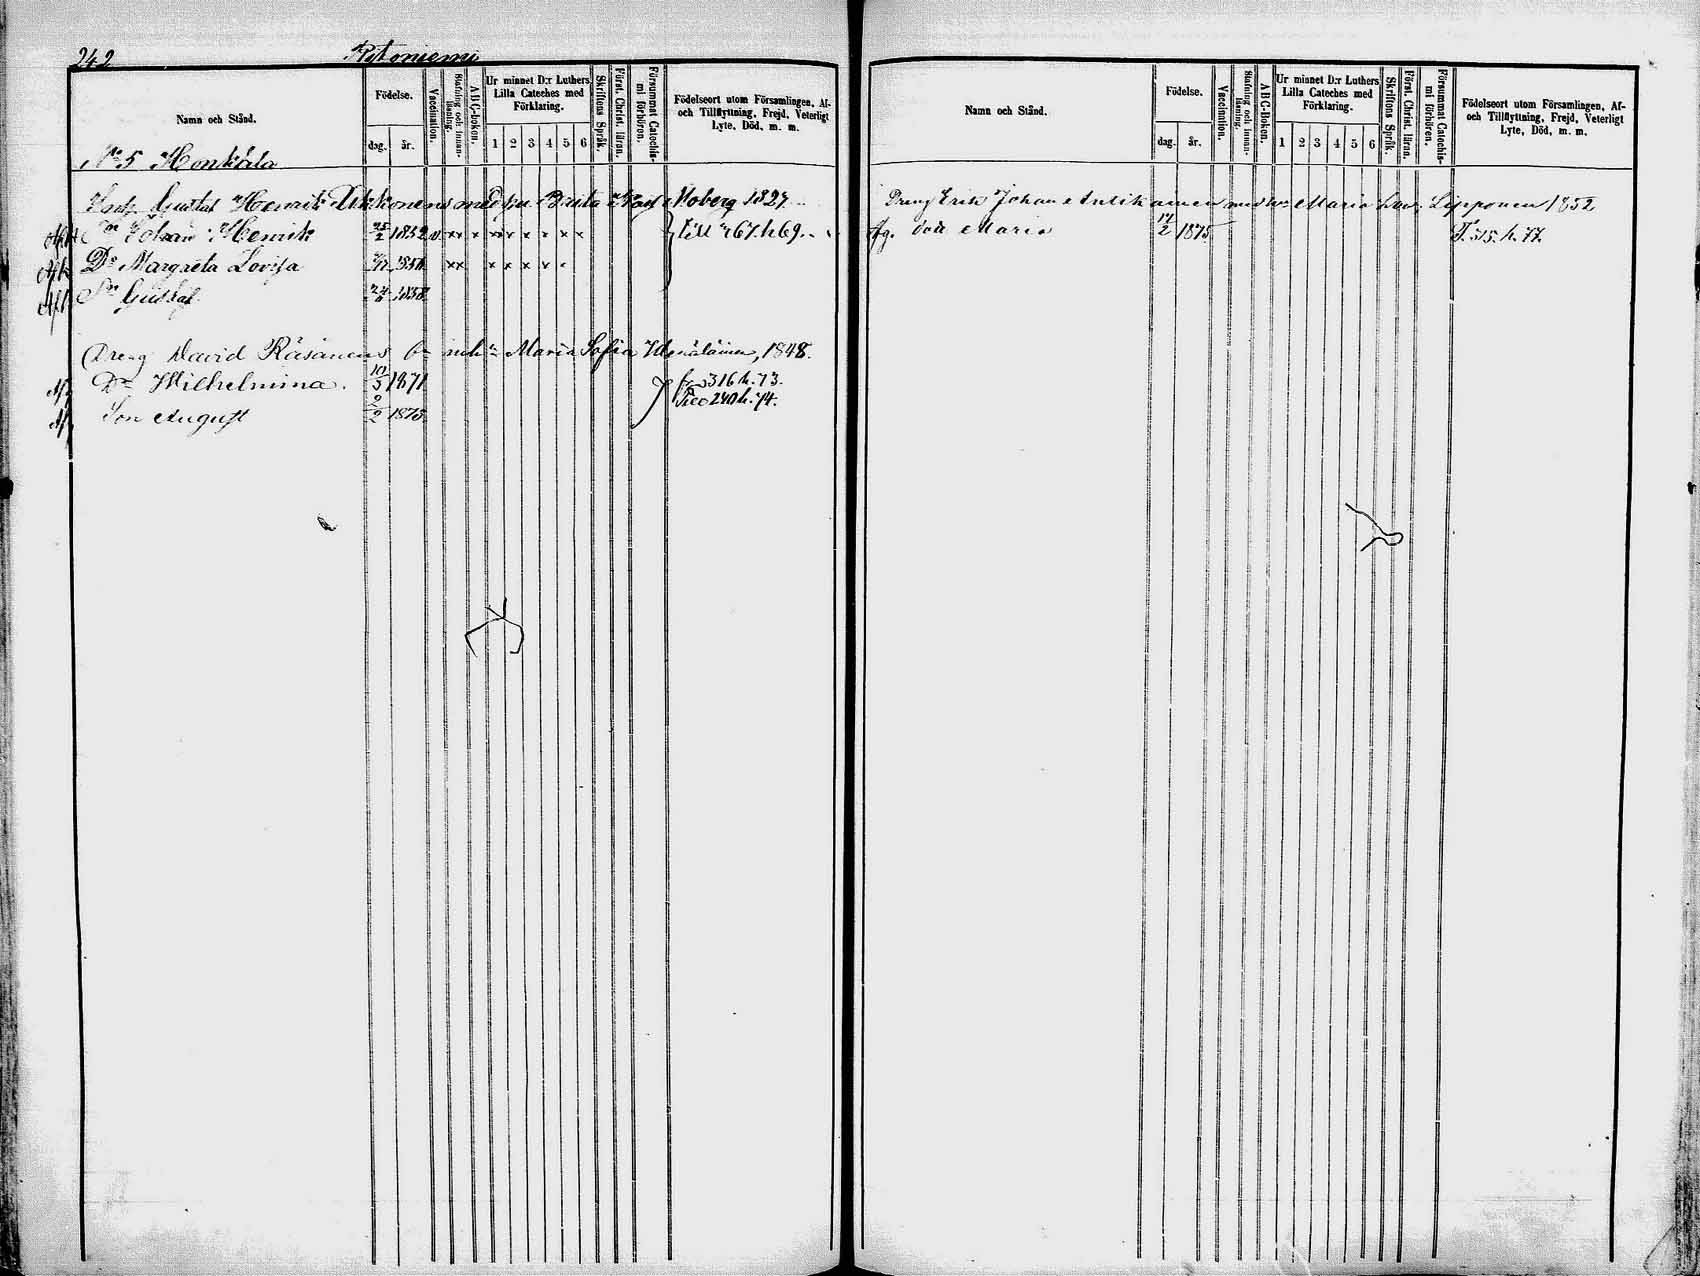 242
Namn och Stånd.
Födelse.
dag.
år.
Vaccination.
Stafning och innan-läsning.
ABC-boken.
Ur minnet D:r Luthers
Lilla Cateches med
Förklaring.
1 2 3 4 5 6
Skriftens Språk.
Först. Christ. läran.
Försummat Catechis-
mi förhören.
Födelseort utom Församlingen, Af-
och Tillflyttning, Frejd, Veterligt
Lyte, Död, m. m.
No 5 Honkala
Gustaf Henrik med hu Brita Moberg 1827
Son Johan Henrik 25/2 1852 v xx x xx x x x x x
Dr Margreta Lovisa 1856 xx x x x x
Sn Gustaf 1858
Dreng David Räsänens Maria Sofia 1848.
Dr Wilhelmina. 10/5 1871 316 h. 73.
240 h. 74.
Son August 2/2 1875
Namn och Stånd.
Födelse.
dag.
år.
Vaccination.
Stafning och innan-läsning.
ABC-Boken.
Ur minnet D:r Luthers
Lilla Cateches med
Förklaring.
1 2 3 4 5 6
Skriftens Språk.
Först. Christ. läran.
Försummat Catechis-
mi förhören.
Födelseort utom Församlingen, Af-
och Tillflyttning, Frejd, Veterligt
Lyte, Död, m. m.
Dreng Erik Johan Antikainen Maria Lipponen 1852
dott Maria 17/2 1875 T. 315. h. 77.